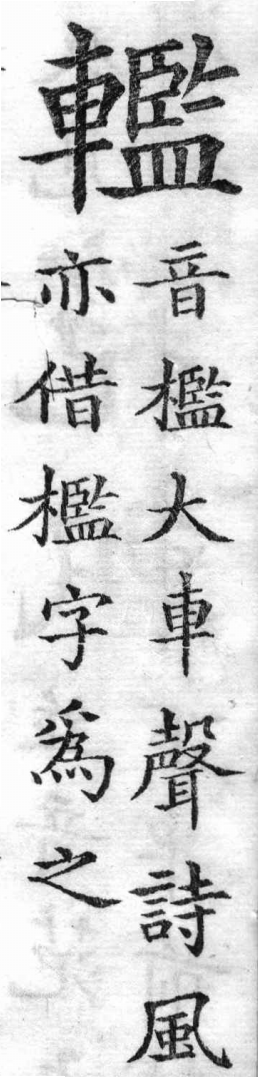 轞
音檻大車聲詩風
亦借檻字爲之